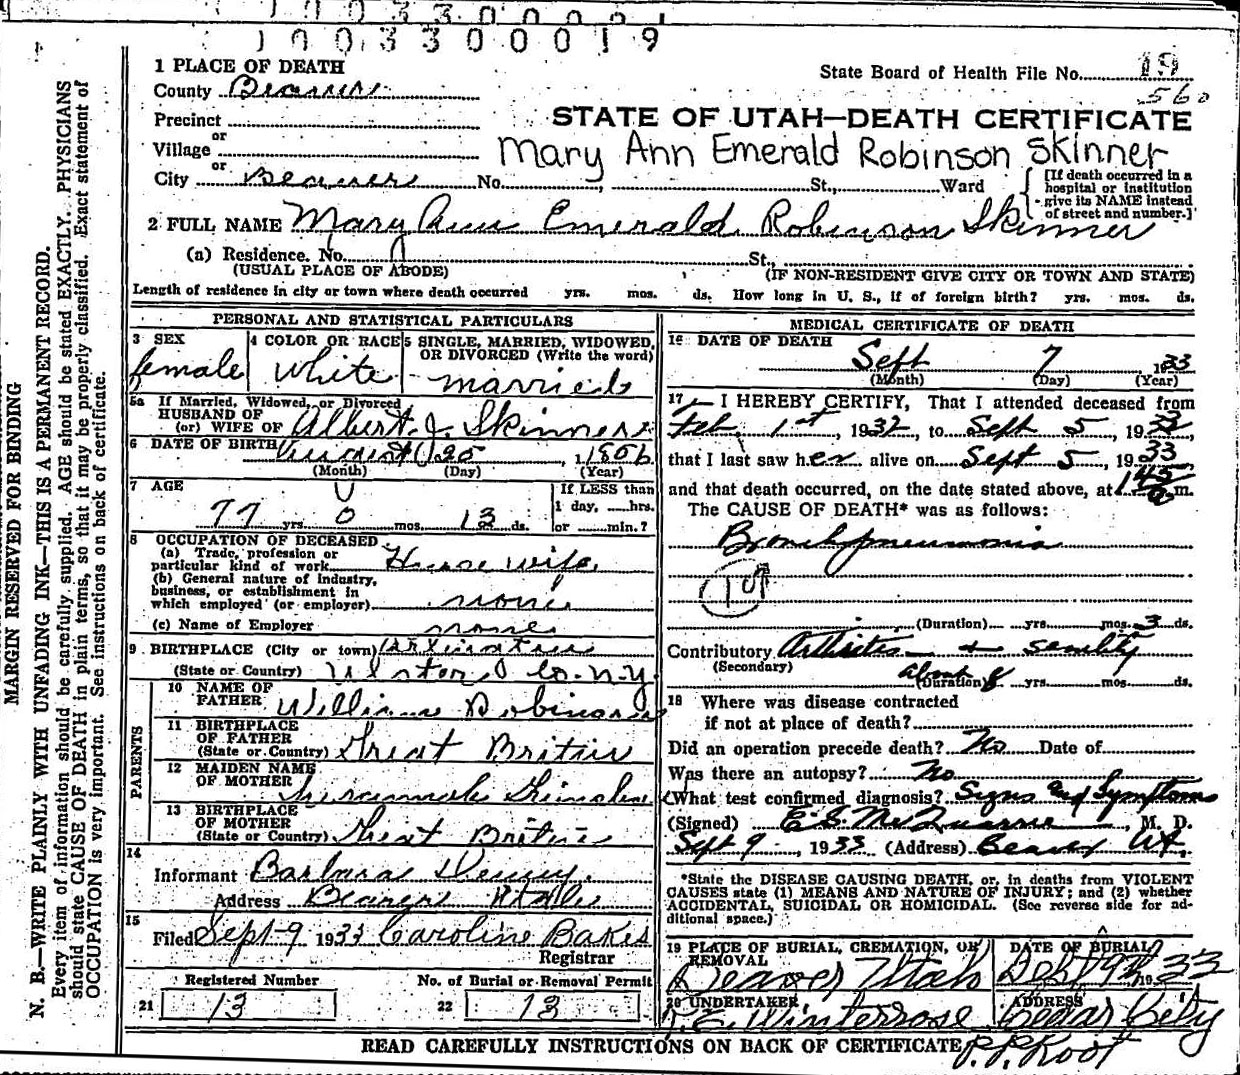 1003300019
1 PLACE OF DEATH
State Board of Health File No. 19
County Beaver
560
Precinct
STATE OF UTAH—DEATH CERTIFICATE
or
Village
Mary Ann Emerald Robinson Skinner
or
City Beaver No. , St., Ward
[If death occurred in a
hospital or institution
give its NAME instead
of street and number.]
2 FULL NAME Mary Ann Emerald Robinson Skinner
(a) Residence. No. St.,
(USUAL PLACE OF ABODE) (IF NON-RESIDENT GIVE CITY OR TOWN AND STATE)
Length of residence in city or town where death occurred yrs. mos. ds. How long in U. S., if of foreign birth? yrs. mos. ds.
MARGIN RESERVED FOR BINDING
N. B.—WRITE PLAINLY WITH UNFADING INK—THIS IS A PERMANENT RECORD.
Every item of information should be carefully supplied. AGE should be stated EXACTLY. PHYSICIANS
should state CAUSE OF DEATH in plain terms, so that it may be properly classified. Exact statement of
OCCUPATION is very important. See instructions on back of certificate.
PERSONAL AND STATISTICAL PARTICULARS
3 SEX
female
4 COLOR OR RACE
white
5 SINGLE, MARRIED, WIDOWED,
OR DIVORCED (Write the word)
married
5a If Married, Widowed, or Divorced
HUSBAND OF
(or) WIFE OF Albert J. Skinner
6 DATE OF BIRTH August 25 1856
(Month) (Day) (Year)
7 AGE
77 yrs. 0 mos. 13 ds.
If LESS than
1 day, hrs.
or min.?
8 OCCUPATION OF DECEASED
(a) Trade, profession or
particular kind of work House wife
(b) General nature of industry,
business, or establishment in
which employed (or employer) none
(c) Name of Employer none
9 BIRTHPLACE (City or town)
(State or Country) Ulster Co. N.Y.
PARENTS
10 NAME OF
FATHER William Robinson
11 BIRTHPLACE
OF FATHER
(State or Country) Great Britin
12 MAIDEN NAME
OF MOTHER
13 BIRTHPLACE
OF MOTHER
(State or Country) Great Britin
14
Informant Barbara
Address Beaver Utah
15
Filed Sept 9 1933 Caroline Bakes
Registrar
Registered Number No. of Burial or Removal Permit
21 13 22 13
MEDICAL CERTIFICATE OF DEATH
16 DATE OF DEATH
Sept 7 1933
(Month) (Day) (Year)
17 I HEREBY CERTIFY, That I attended deceased from
Feb. 1st, 1932, to Sept 5, 1933,
that I last saw her alive on Sept 5, 1933
and that death occurred, on the date stated above, at 1 45 a m.
The CAUSE OF DEATH* was as follows:
Bronchopneumonia
(Duration) yrs. mos. 3 ds.
Contributory Arthritis + senility
(Secondary)
about 8
(Duration) yrs. mos. ds.
18 Where was disease contracted
if not at place of death?
Did an operation precede death? No Date of
Was there an autopsy? No
What test confirmed diagnosis? Signs and Symptoms
(Signed) E. S. McQuarrie, M. D.
Sept 9, 1933 (Address) Beaver Ut.
*State the DISEASE CAUSING DEATH, or, in deaths from VIOLENT
CAUSES state (1) MEANS AND NATURE OF INJURY; and (2) whether
ACCIDENTAL, SUICIDAL OR HOMICIDAL. (See reverse side for ad-
ditional space.)
19 PLACE OF BURIAL, CREMATION, OR
REMOVAL
Beaver Utah
DATE OF BURIAL
Sept 9th 1933
20 UNDERTAKER
Winterrose
ADDRESS
Cedar City
READ CAREFULLY INSTRUCTIONS ON BACK OF CERTIFICATE P. P. Root